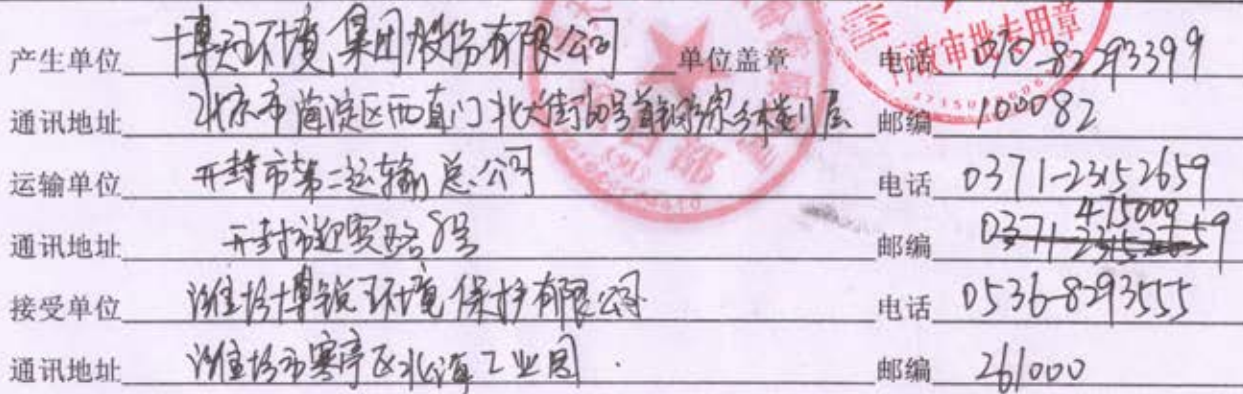 产生单位 博天环境集团股份有限公司 单位盖章 电话 010-82293399
通讯地址 北京市海淀区西直门北大街60号首钢 11层 邮编 100082
运输单位 开封市第二运输总公司 电话 0371-23152659
通讯地址 开封市迎宾路8号 邮编 475000
0371-23152659
接受单位 潍坊博锐环境保护有限公司 电话 0536-8293555
通讯地址 潍坊市寒亭区北海工业园 邮编 261000
审批专用章